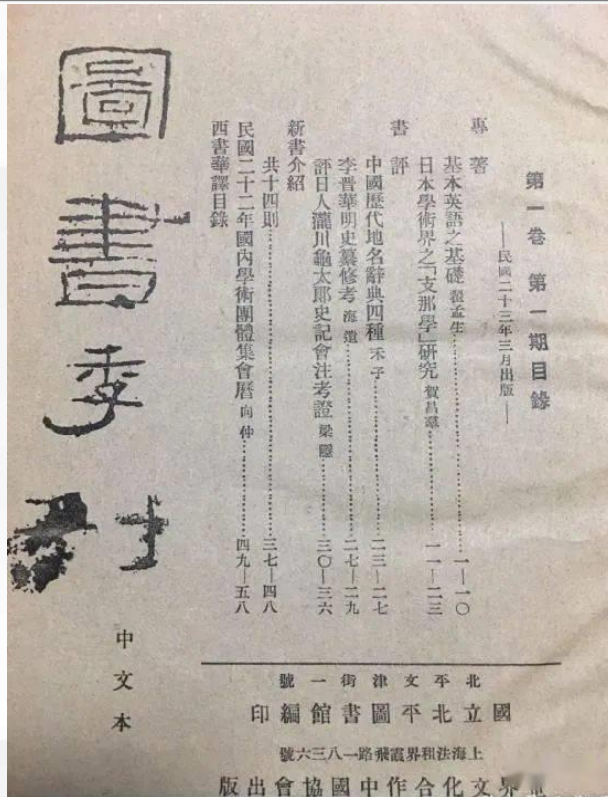 第一卷 第一期目錄
——民國二十三年三月出版——
專著
基本英語之基礎 翟孟生……一—一〇
日本學術界之「支那學」研究 賀昌羣……一一—二三
書評
中國歷代地名辭典四種 禾子……二三—二七
李晉華明史纂修考 海遺……二七—二九
評日人瀧川龜太郎史記會注考證 梁……三〇—三六
新書介紹
共十四則……三七—四八
民國二十二年國內學術團體集會曆 向仲……四九—五八
西書華譯目錄
圖書季刊
中文本
北平文津街一號
國立北平圖書館編印
上海法租界霞飛路一八三六號
世界文化合作中國協會出版